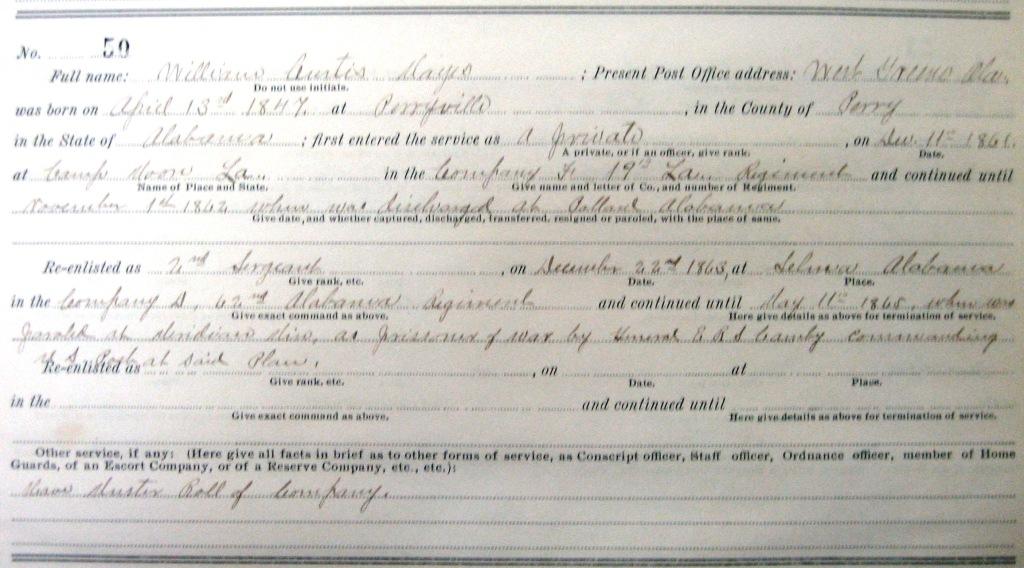 No. 59
Full name: William Curtis Mayes ; Present Post Office address: West Greene Ala.
Do not use initials.
was born on April 13rd 1847 at Perryville , in the County of Perry
in the State of Alabama ; first entered the service as A private , on Dec. 11th 1861.
A private, or if an officer, give rank. Date.
at Camp Moore La. in the Company F 19th La. Regiment and continued until
Name of Place and State. Give name and letter of Co., and number of Regiment.
November 1st 1862 when was discharged at Alabama
Give date, and whether captured, discharged, transferred, resigned or paroled, with the place of same.
Re-enlisted as 2nd Sergeant , on December 22nd 1863, at Selma Alabama
Give rank, etc. Date. Place.
in the Company D, 62nd Alabama Regiment and continued until May 11th 1865, when was
Give exact command as above. Here give details as above for termination of service.
paroled at Meridian Miss, as prisoner of war by General E R S Canby commanding
U S Post at said Place.
Re-enlisted as , on at
Give rank, etc. Date. Place.
in the and continued until
Give exact command as above. Here give details as above for termination of service.
Other service, if any: (Here give all facts in brief as to other forms of service, as Conscript officer, Staff officer, Ordnance officer, member of Home
Guards, of an Escort Company, or of a Reserve Company, etc., etc.):
Have Muster Roll of Company.